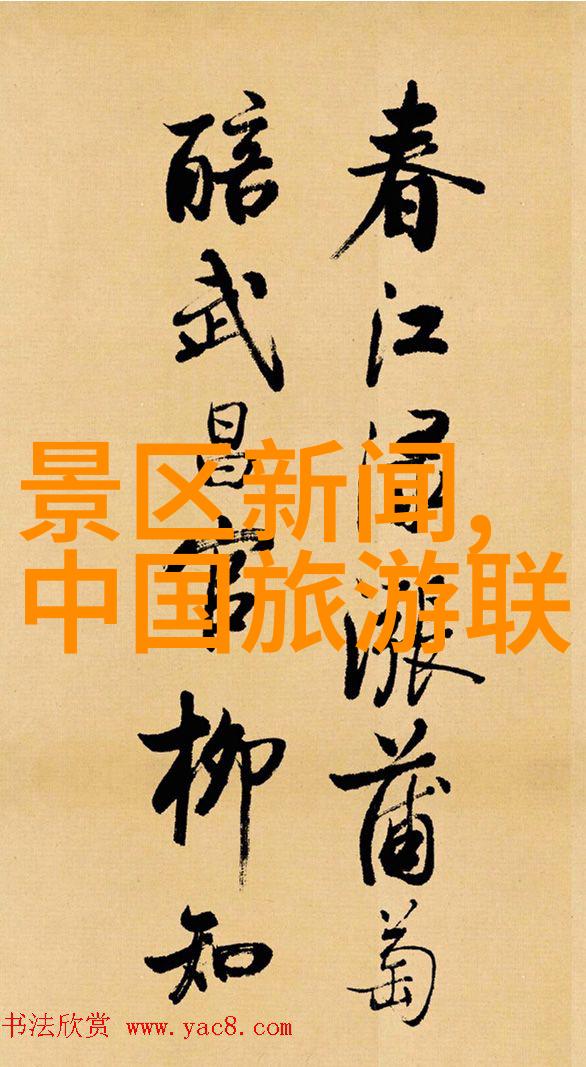 春江漲蒲萄
醅武昌官柳知
景区新闻,
中国旅游联
书法欣赏 www.yac8.com